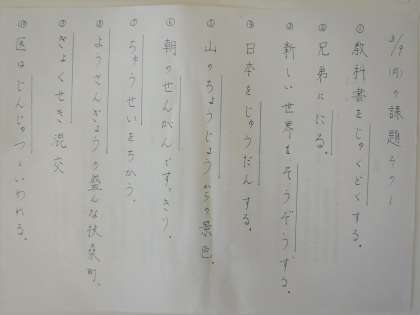 3/9(月)の課題その1
① 教科書をじゅくどくする。
② 兄弟ににる。
③ 新しい世界をそうぞうする。
④ 日本をじゅうだんする。
⑤ 山のちょうじょうからの景色。
⑥ 朝のせんがんですっきり。
⑦ ちゅうせいをちかう。
⑧ ようさんぎょうの盛んな伏桑町。
⑨ ぎょくせき混交
⑩ 医はじんじゅつといわれる。